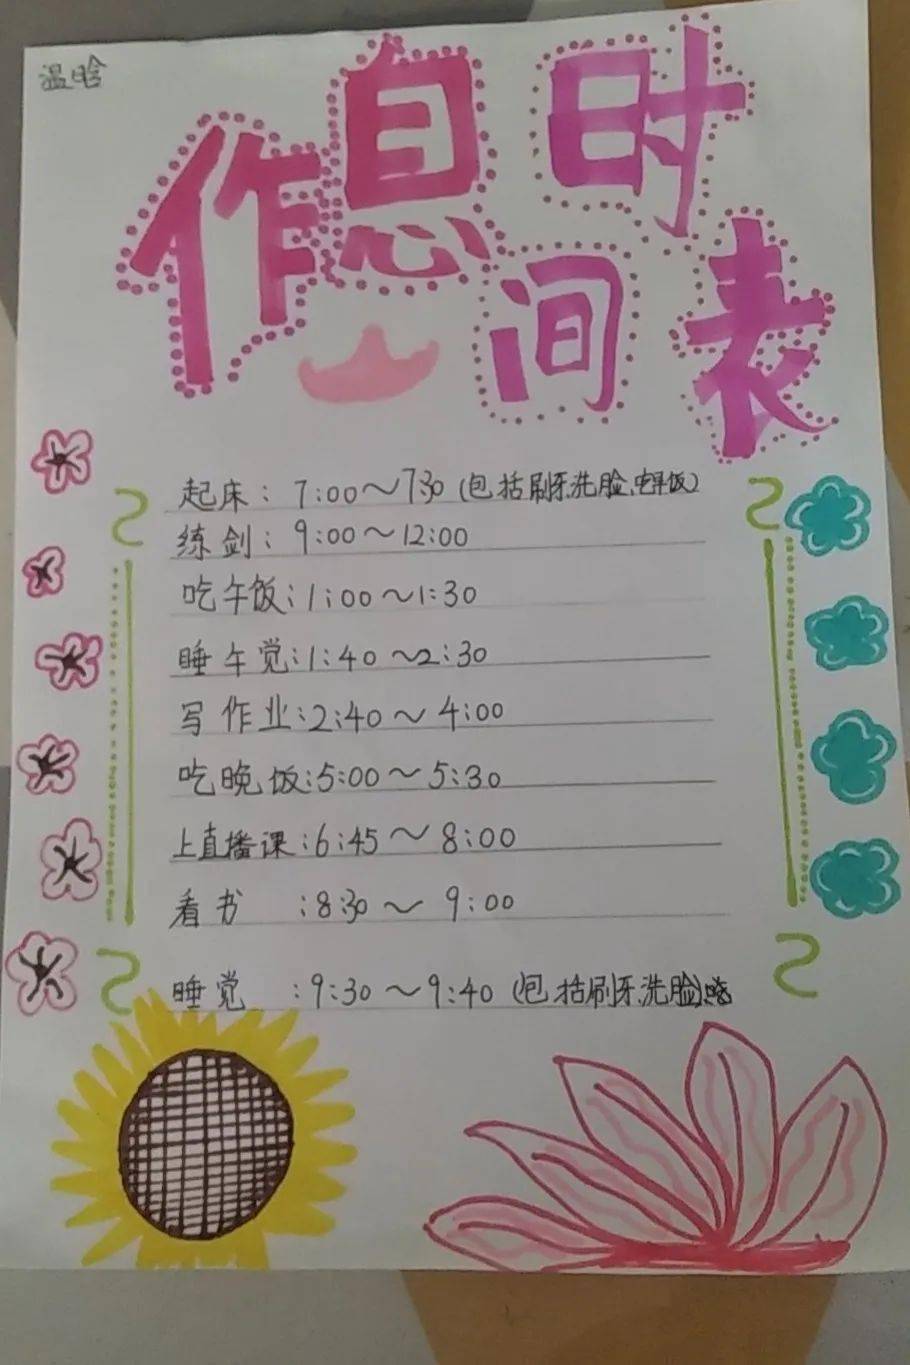 温晗
作息时间表
起床：7:00～730(包括刷牙洗脸、吃早饭)
练剑：9:00～12:00
吃午饭:1:00～1:30
睡午觉:1:40～2:30
写作业:2:40～4:00
吃晚饭:5:00～5:30
上直播课:6:45～8:00
看书 :8:30～9:00
睡觉 :9:30～9:40(包括刷牙、洗脸)